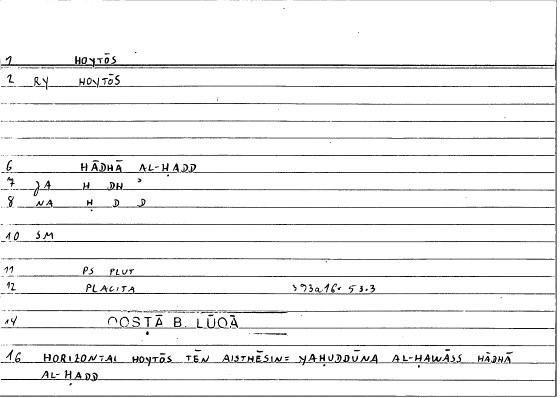 1 HOYTŌS
2 RY HOYTŌS
6 HĀDHĀ AL-ḤADD
7 JA H DH ʾ
8 NA Ḥ D D
10 SM
11 PS PLUT
12 PLACITA 393a16• 53•3
14 QOSṬĀ B. LŪQĀ
16 HORIZONTAL HOYTŌS TĒN AISTHĒSIN= YAḤUDDŪNA AL-ḤAWĀSS HĀDHĀ
AL-ḤADD